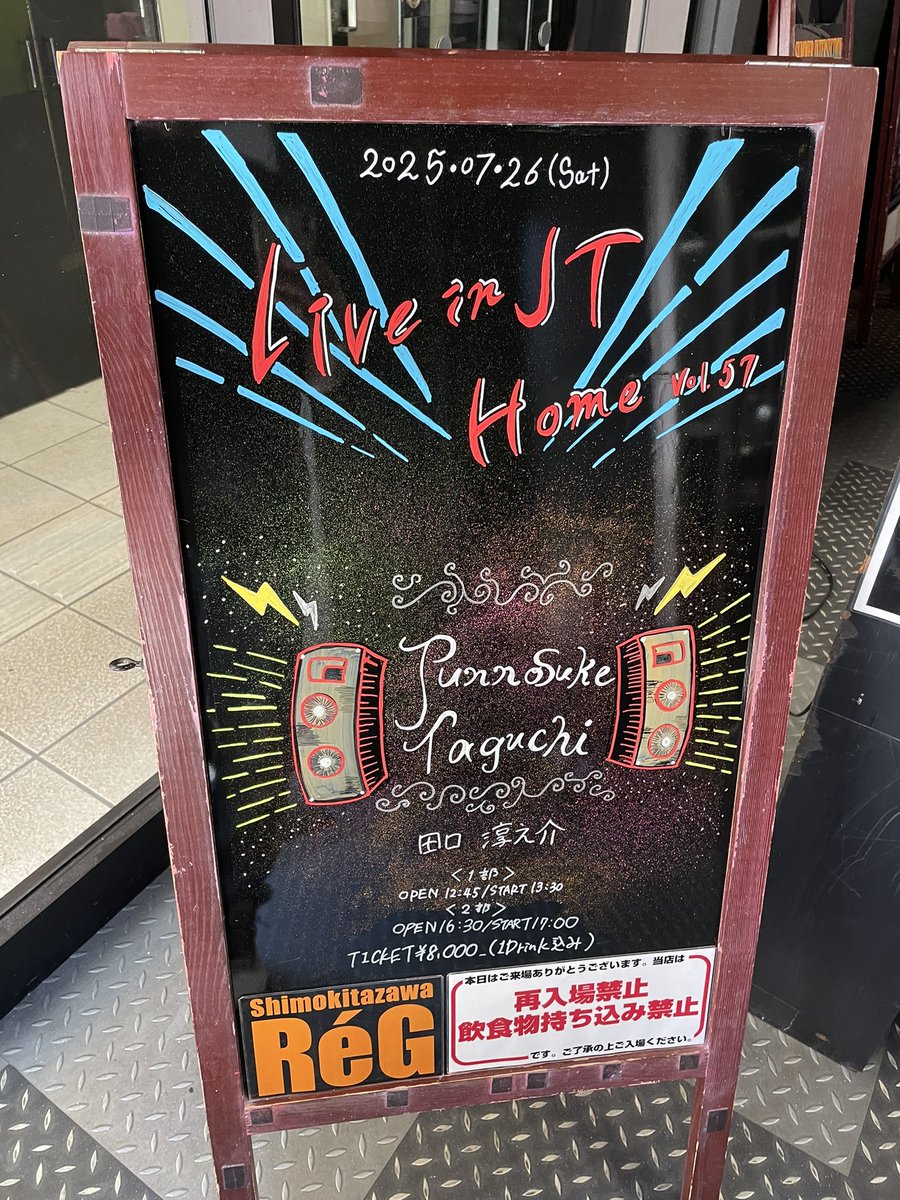 2025.07.26(Sat)
Live in JT
Home Vol.57
Junnosuke
Taguchi
田口 淳之介
<1部>
OPEN 12:45/START 13:30
<2部>
OPEN16:30/START17:00
TICKET¥8,000_(1Drink込み)
Shimokitazawa
RéG
本日はご来場ありがとうございます。当店は
再入場禁止
飲食物持ち込み禁止
です。ご了承の上ご入場ください。